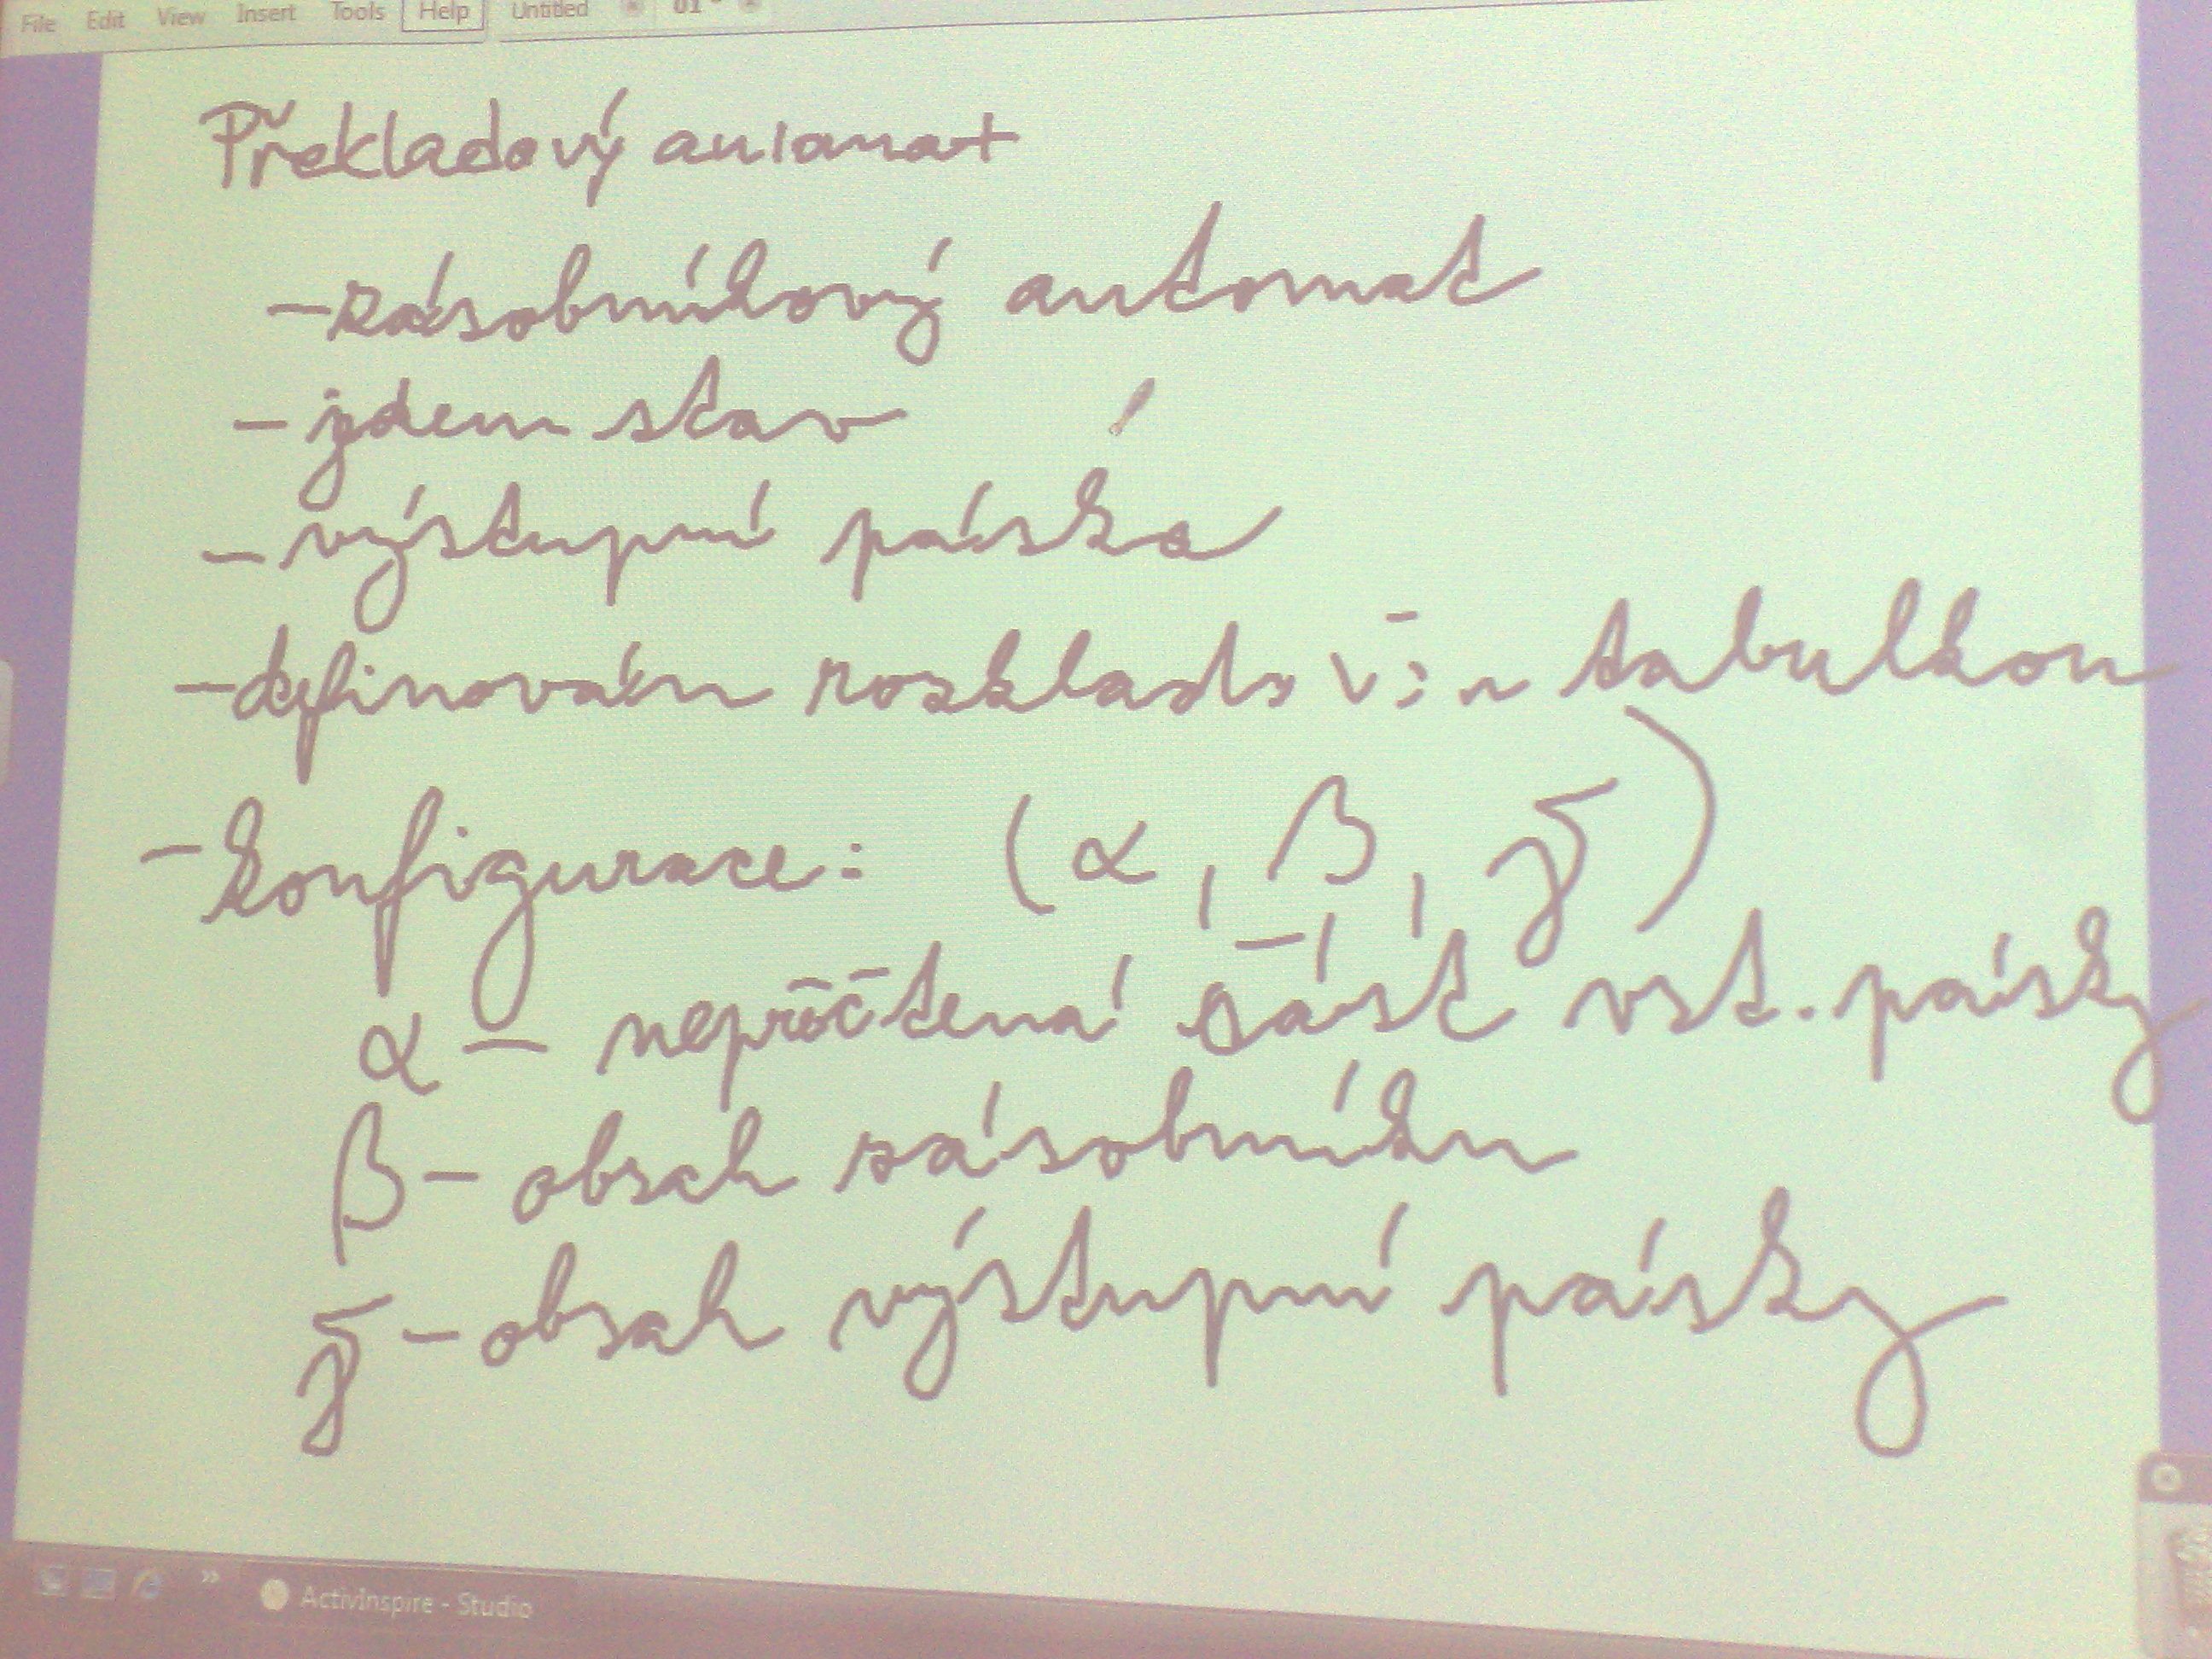 File Edit View Insert Tools Help Untitled 01
Překladový automat
- zásobníkový automat
- jeden stav
- výstupní páska
- definován rozkladovou tabulkou
- konfigurace: (α, β, ȳ)
α - nepřečtená část vst. pásky
β - obsah zásobníku
ȳ - obsah výstupní pásky
ActivInspire - Studio